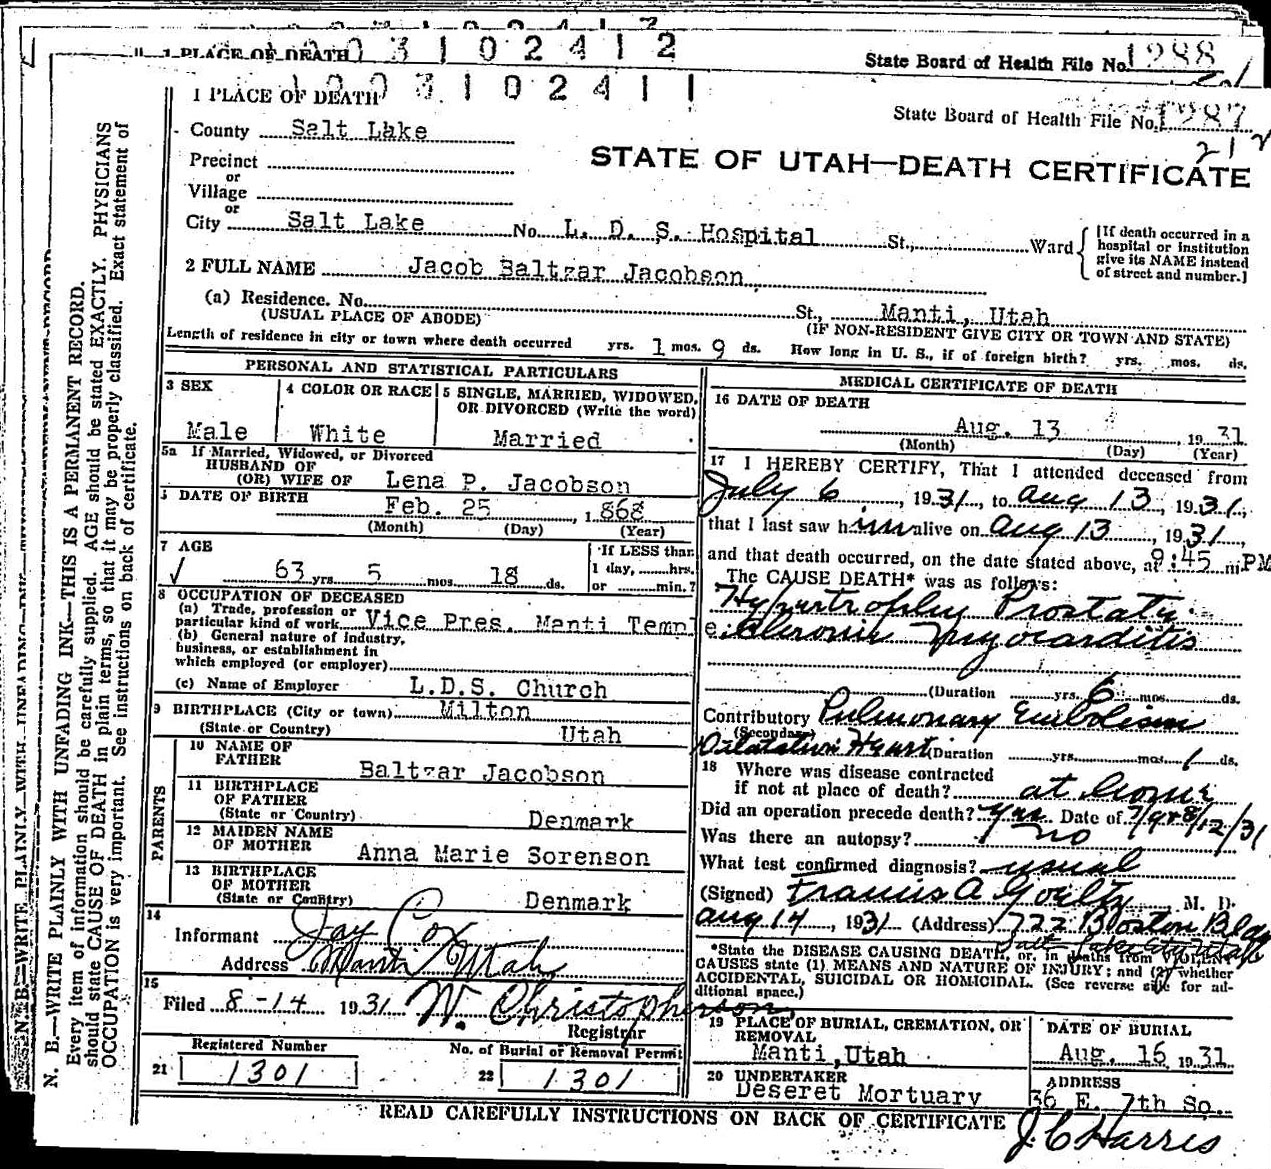 1 PLACE OF DEATH
1003102412
State Board of Health File No. 1288
1003102411
1 PLACE OF DEATH
State Board of Health File No. 1287
212
County Salt Lake
STATE OF UTAH—DEATH CERTIFICATE
Precinct
or
Village
or
City Salt Lake No. L. D. S. Hospital St., Ward
[If death occurred in a
hospital or institution
give its NAME instead
of street and number.]
2 FULL NAME Jacob Baltzar Jacobson
(a) Residence. No. St., Manti, Utah
(USUAL PLACE OF ABODE) (IF NON-RESIDENT GIVE CITY OR TOWN AND STATE)
Length of residence in city or town where death occurred yrs. 1 mos. 9 ds. How long in U. S., if of foreign birth? yrs. mos. ds.
PERSONAL AND STATISTICAL PARTICULARS
3 SEX
Male
4 COLOR OR RACE
White
5 SINGLE, MARRIED, WIDOWED,
OR DIVORCED (Write the word)
Married
5a If Married, Widowed, or Divorced
HUSBAND OF
(OR) WIFE OF Lena P. Jacobson
DATE OF BIRTH
Feb. 25, 1868
(Month) (Day) (Year)
7 AGE
✓ 63 yrs. 5 mos. 18 ds.
If LESS than
1 day, hrs.
or min.?
8 OCCUPATION OF DECEASED
(a) Trade, profession or
particular kind of work Vice Pres. Manti Temple
(b) General nature of industry,
business, or establishment in
which employed (or employer)
(c) Name of Employer L.D.S. Church
9 BIRTHPLACE (City or town) Milton
(State or Country) Utah
PARENTS
10 NAME OF
FATHER Baltzar Jacobson
11 BIRTHPLACE
OF FATHER
(State or Country) Denmark
12 MAIDEN NAME
OF MOTHER Anna Marie Sorenson
13 BIRTHPLACE
OF MOTHER
(State or Country) Denmark
14
Informant Jay Cox
Address Manti Utah
15
Filed 8-14 1931 W. Christopherson,
Registrar
Registered Number
21 1301
No. of Burial or Removal Permit
22 1301
MEDICAL CERTIFICATE OF DEATH
16 DATE OF DEATH
Aug. 13, 1931
(Month) (Day) (Year)
17 I HEREBY CERTIFY, That I attended deceased from
July 6, 1931, to Aug 13, 1931,
that I last saw him alive on Aug 13, 1931,
and that death occurred, on the date stated above, at 9:45 m PM
The CAUSE DEATH* was as follows:
Hypertrophy Prostate
Chronic Myocarditis
(Duration yrs. 6 mos. ds.
Contributory Pulmonary Embolism
(Secondary)
Dilatation Heart (Duration yrs. mos. 1 ds.
18 Where was disease contracted
if not at place of death? at home
Did an operation precede death? yes Date of 7/9 & 8/12/31
Was there an autopsy? no
What test confirmed diagnosis? usual
(Signed) Francis A Goeltz M. D.
Aug 14, 1931 (Address) 722 Boston Bldg
Salt Lake City Utah
*State the DISEASE CAUSING DEATH, or, in deaths from VIOLENT
CAUSES state (1) MEANS AND NATURE OF INJURY; and (2) whether
ACCIDENTAL, SUICIDAL OR HOMICIDAL. (See reverse side for ad-
ditional space.)
19 PLACE OF BURIAL, CREMATION, OR
REMOVAL
Manti, Utah
DATE OF BURIAL
Aug. 16, 1931
20 UNDERTAKER
Deseret Mortuary
ADDRESS
36 E. 7th So.
READ CAREFULLY INSTRUCTIONS ON BACK OF CERTIFICATE
J. C. Harris
N. B.—WRITE PLAINLY WITH UNFADING INK—THIS IS A PERMANENT RECORD.
Every item of information should be carefully supplied. AGE should be stated EXACTLY. PHYSICIANS
should state CAUSE OF DEATH in plain terms, so that it may be properly classified. Exact statement of
OCCUPATION is very important. See instructions on back of certificate.